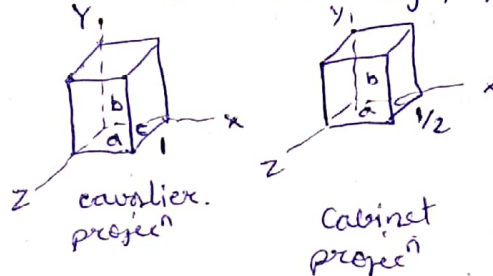 Y, 1
b
a c x
1
Z
cavalier.
projecⁿ
y, 1
b
a c x
1/2
Z
Cabinet
projecⁿ